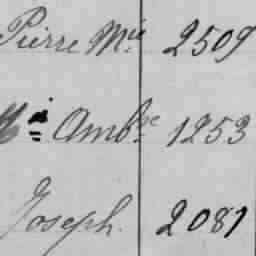 Pierre Mie 2509
Mie Ambse 1253
Joseph. 2081